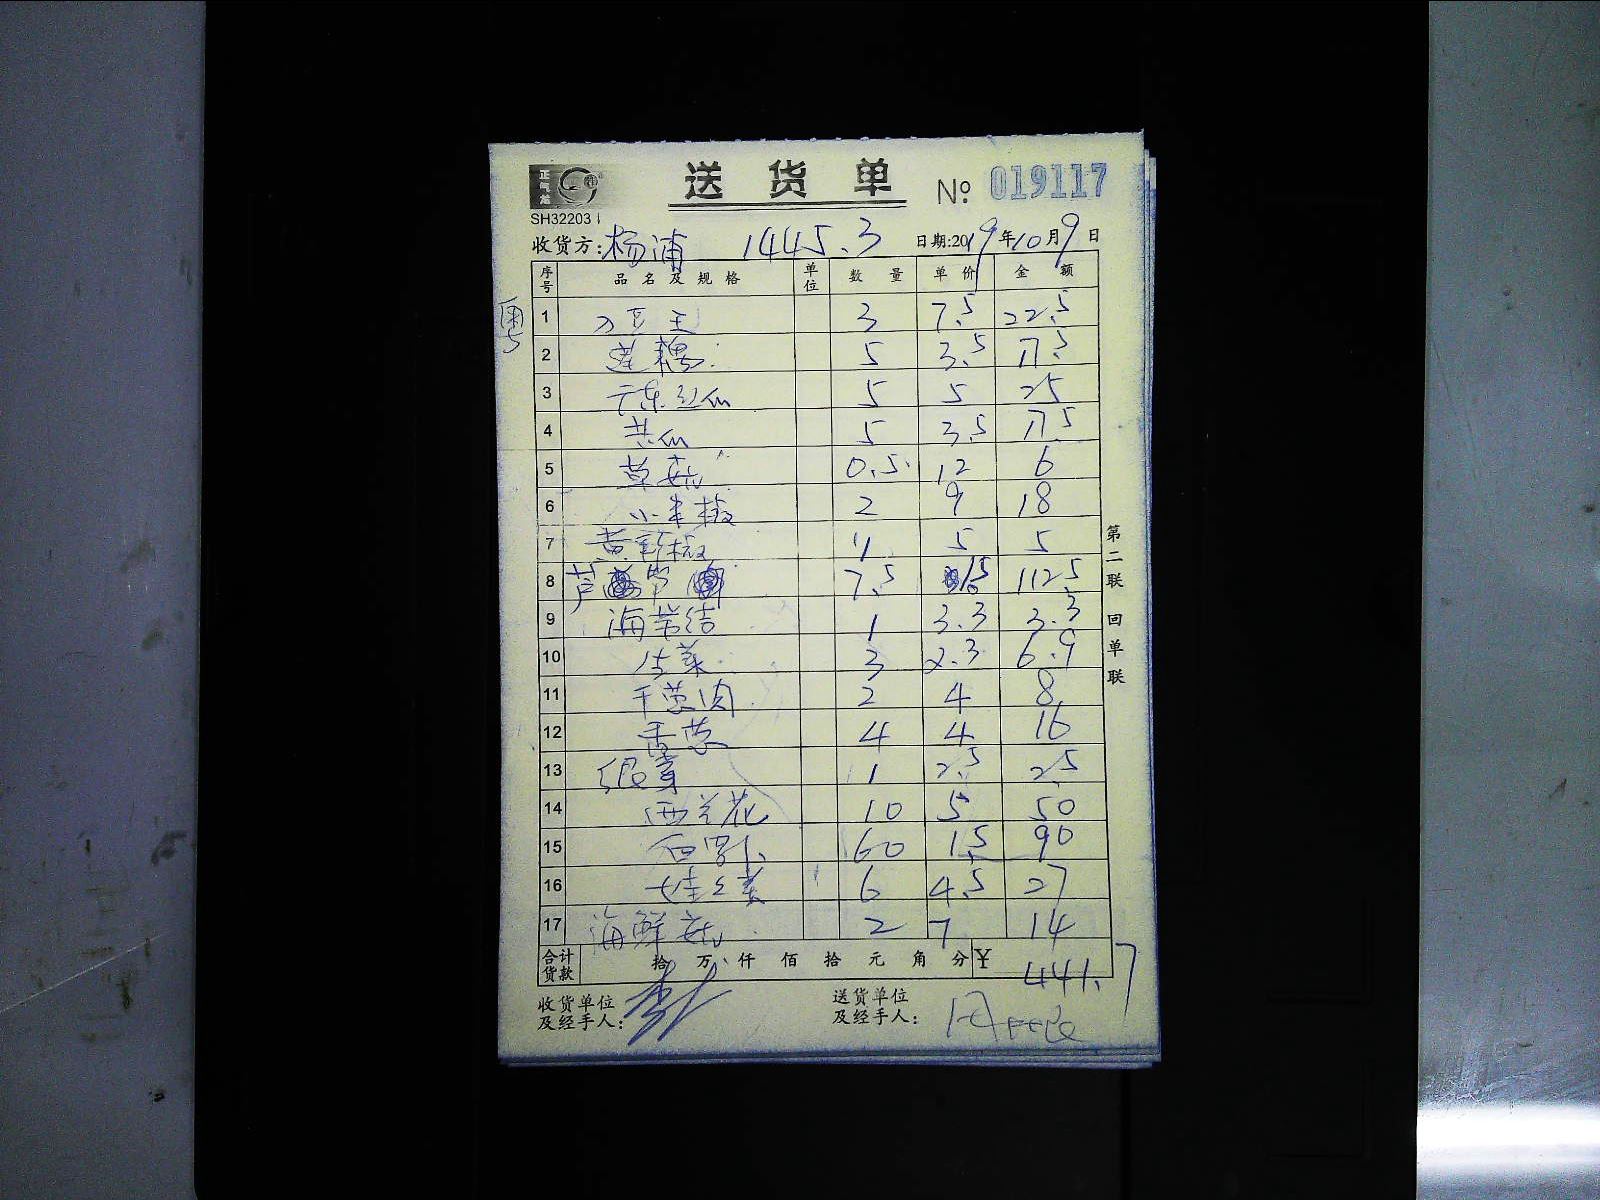 送货单 № 019117
SH32203
收货方: 杨浦 1445.3 日期:2019年10月9日
序号 品名及规格 单位 数量 单价 金额
粤
1 刀豆王 3 7.5 22.5
2 莲藕 5 3.5 17.5
3 5 5 25
4 5 3.5 17.5
5 草菇 0.5 12 6
6 小米椒 2 9 18
7 黄彩椒 1 5 5
8 芦笋 7.5 15 112.5
9 海带结 1 3.3 3.3
10 生菜 3 2.3 6.9
11 干葱肉 2 4 8
12 香葱 4 4 16
13 银芽 1 2.5 2.5
14 西兰花 10 5 50
15 白萝卜 60 1.5 90
16 娃娃菜 6 4.5 27
17 海鲜菇 2 7 14
合计货款 拾 万 仟 佰 拾 元 角 分 ¥ 441.7
收货单位及经手人:
送货单位及经手人:
第二联 回单联